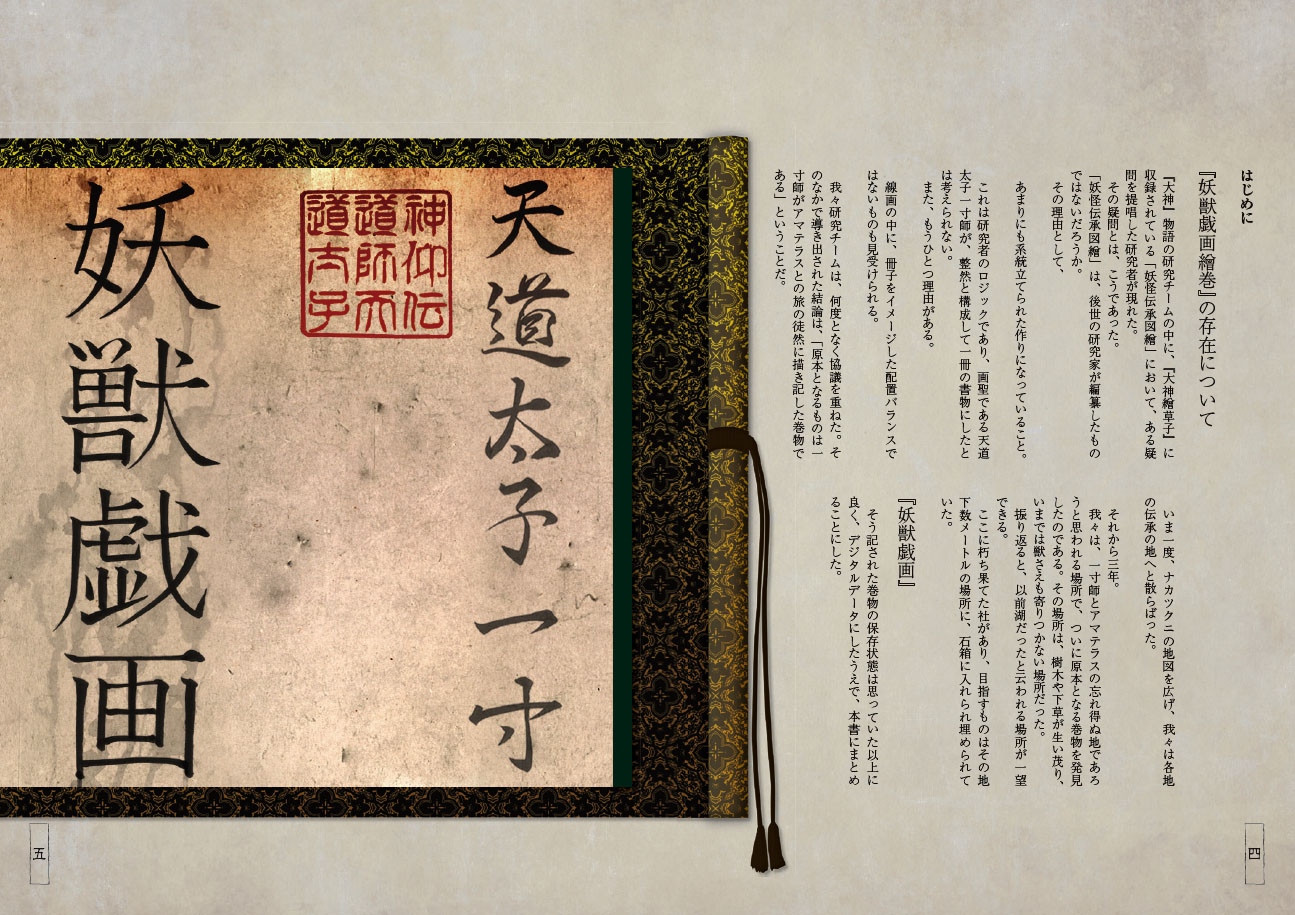 はじめに
『妖獣戯画繪巻』の存在について
『大神』物語の研究チームの中に、『大神繪草子』に
収録されている「妖怪伝承図繪」において、ある疑
問を提唱した研究者が現れた。
その疑問とは、こうであった。
「妖怪伝承図繪」は、後世の研究家が編纂したもの
ではないだろうか。
その理由として、
あまりにも系統立てられた作りになっていること。
これは研究者のロジックであり、画聖である天道
太子一寸師が、整然と構成して一冊の書物にしたと
は考えられない。
また、もうひとつ理由がある。
線画の中に、冊子をイメージした配置バランスで
はないものも見受けられる。
我々研究チームは、何度となく協議を重ねた。そ
のなかで導き出された結論は、「原本となるものは一
寸師がアマテラスとの旅の徒然に描き記した巻物で
ある」ということだ。
いま一度、ナカツクニの地図を広げ、我々は各地
の伝承の地へと散らばった。
それから三年。
我々は、一寸師とアマテラスの忘れ得ぬ地であろ
うと思われる場所で、ついに原本となる巻物を発見
したのである。その場所は、樹木や下草が生い茂り、
いまでは獣さえも寄りつかない場所だった。
振り返ると、以前湖だったと云われる場所が一望
できる。
ここに朽ち果てた社があり、目指すものはその地
下数メートルの場所に、石箱に入れられ埋められて
いた。
『妖獣戯画』
そう記された巻物の保存状態は思っていた以上に
良く、デジタルデータにしたうえで、本書にまとめ
ることにした。
四
天道太子一寸
神仰伝
道師天
道太子
妖獣戯画
五